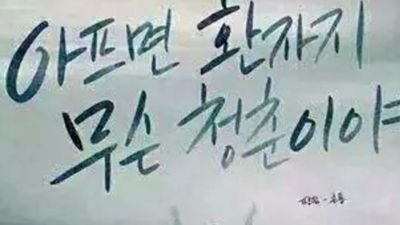 아프면 환자지
무슨 청춘이야